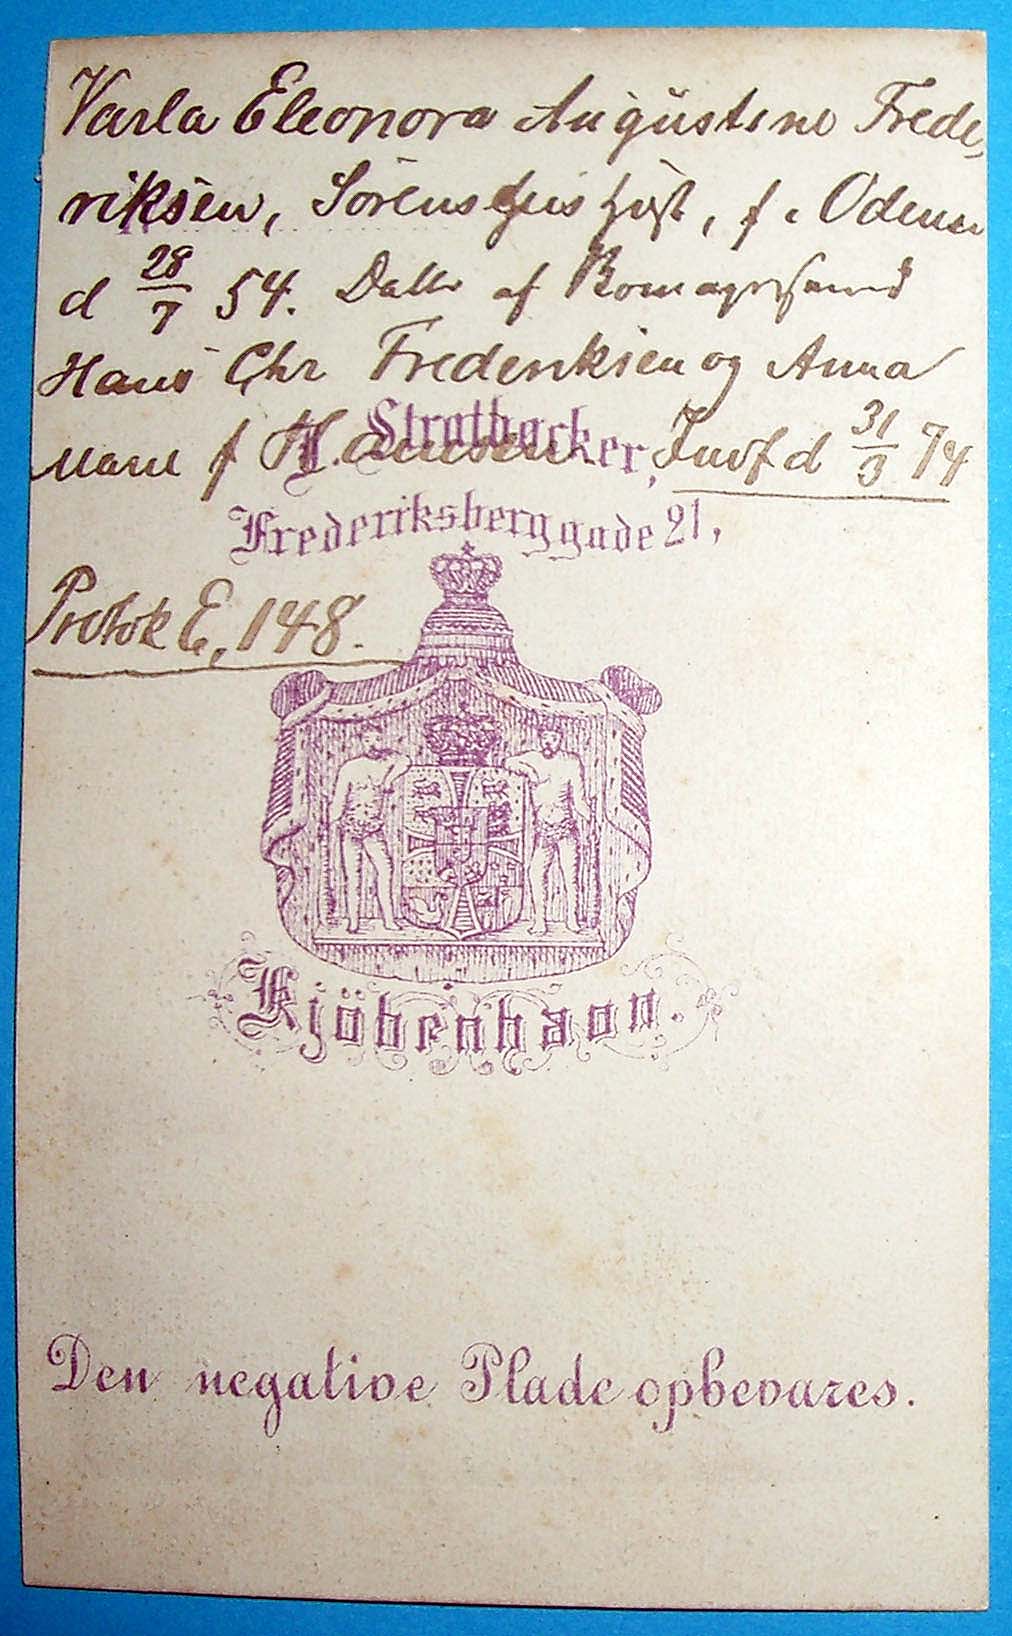 Varla Eleonora Augüstine Frede,
riksen, Sörens f. Odense
d 28/7 54. Datter af
Hans Chr Frederiksen og Anna
Marie f Hansen. d 31/3 74
F. Strotbæcker,
Frederiksberggade 21,
Protok E, 148.
Kjöbenhavn.
Den negative Plade opbevares.